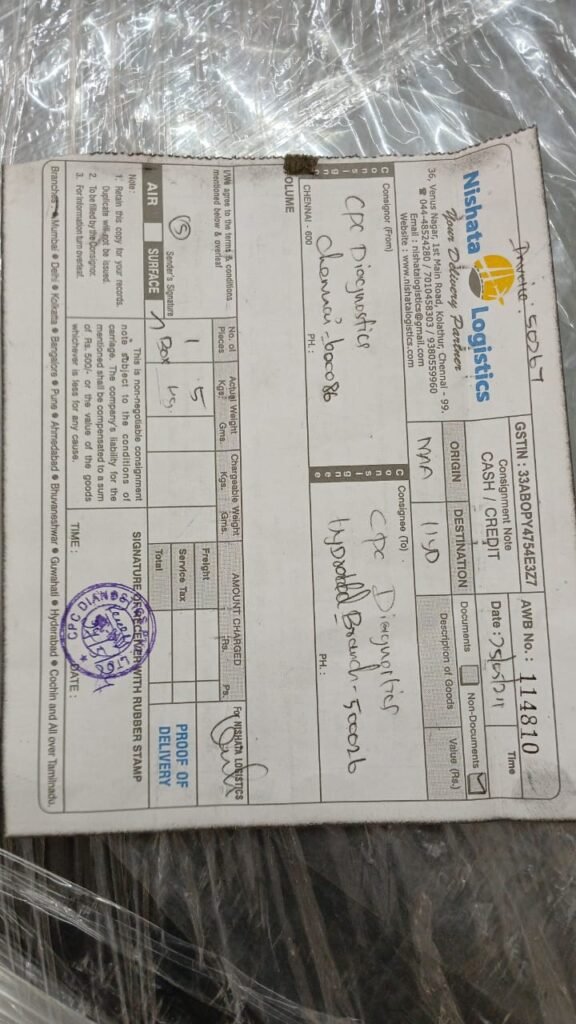 Invoice : 50267
Nishata Logistics
Your Delivery Partner
36, Venus Nagar, 1st Main Road, Kolathur, Chennai - 99.
☎ 044-48524280 / 7010458303 / 9380559960
Email : nishatalogistics@gmail.com
Website : www.nishatalogistics.com
GSTIN : 33ABOPY4754E3Z7
Consignment Note
CASH / CREDIT
AWB No. : 114810
Date :
Time
ORIGIN
DESTINATION
MAA
HYD
Documents
Non-Documents
Description of Goods
Value (Rs.)
Consignor (From)
CPC Diagnostics
Chennai-600086
CHENNAI - 600
PH. :
Consignee (To)
CPC Diagnostics
Branch - 500026
PH. :
OLUME
I/We agree to the terms & conditions
mentioned below & overleaf
Sender's Signature
No. of Pieces
Actual Weight
Kgs. Gms.
Chargeable Weight
Kgs. Gms.
AMOUNT CHARGED
Rs. Ps.
1 Box
5 kg.
Freight
Service Tax
Total
For NISHATA LOGISTICS
AIR
SURFACE
PROOF OF DELIVERY
Note :
1. Retain this copy for your records.
Duplicate will not be issued.
2. To be filled by the Consignor.
3. For information turn overleaf.
This is non-negotiable consignment
note subject to the conditions of
carriage. The company's liability for the
mentioned shall be compensated to a sum
of Rs. 500/- or the value of the goods
whichever is less for any cause.
SIGNATURE OF RECEIVER WITH RUBBER STAMP
TIME :
DATE :
Branches : Mumbai ● Delhi ● Kolkatta ● Bangalore ● Pune ● Ahmedabad ● Bhuvaneshwar ● Guwahati ● Hyderabad ● Cochin and All over Tamilnadu.